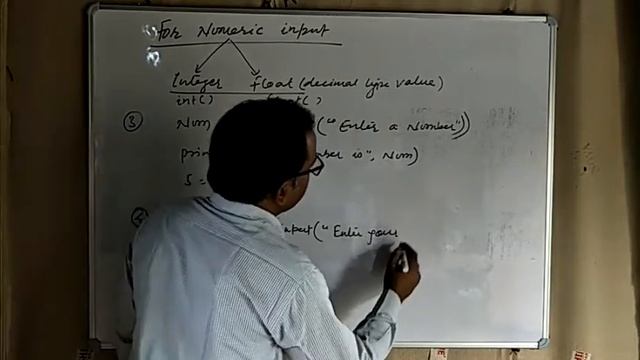 For Numeric input
Integer float (decimal type value)
int( )
③ Num ("Enter a Number"))
prin is", Num)
S =
input("Enter your